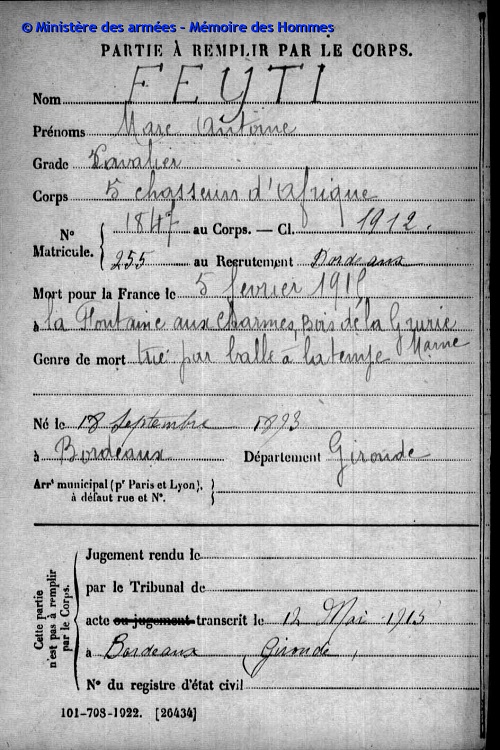 © Ministère des armées - Mémoire des Hommes
PARTIE À REMPLIR PAR LE CORPS.
Nom FEYTI
Prénoms Marc Antoine
Grade Cavalier
Corps 5 chasseurs d'afrique
N° Matricule. 1847 au Corps. — Cl. 1912.
255 au Recrutement Bordeaux
Mort pour la France le 5 fevrier 1915
à la Fontaine aux Charmes, Bois de la Grurie
Marne
Genre de mort tué par balle à la tempe
Né le 18 Septembre 1893
à Bordeaux Département Gironde
Arrt municipal (pr Paris et Lyon),
à défaut rue et N°.
Cette partie n'est pas à remplir par le Corps.
Jugement rendu le
par le Tribunal de
acte ou jugement transcrit le 12 Mai 1915
à Bordeaux Gironde,
N° du registre d'état civil
101-708-1922. [26434]